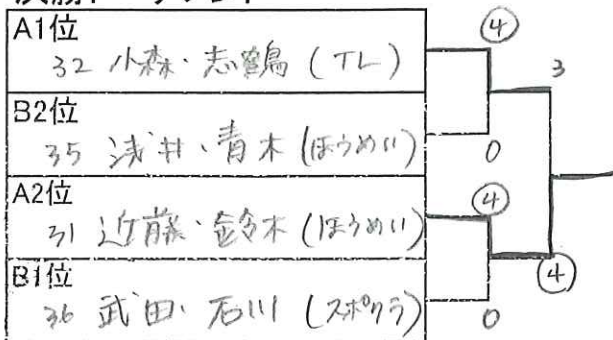 A1位
④
32 小森・志鶴 (TL)
3
B2位
35 浅井・青木 (ほうめい)
0
A2位
④
31 近藤・鈴木 (ほうめい)
B1位
④
36 武田・石川 (スポクラ)
0